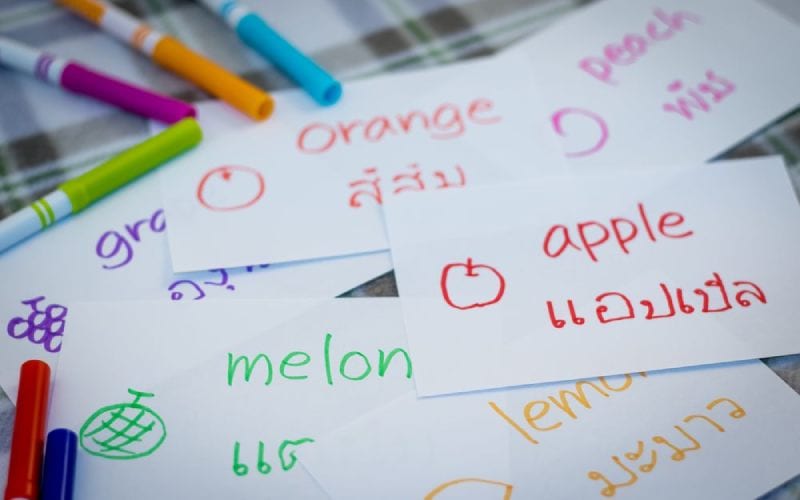 peach
พีช
orange
สีส้ม
apple
แอปเปิล
gra
melon
แต
lemon
มะนาว